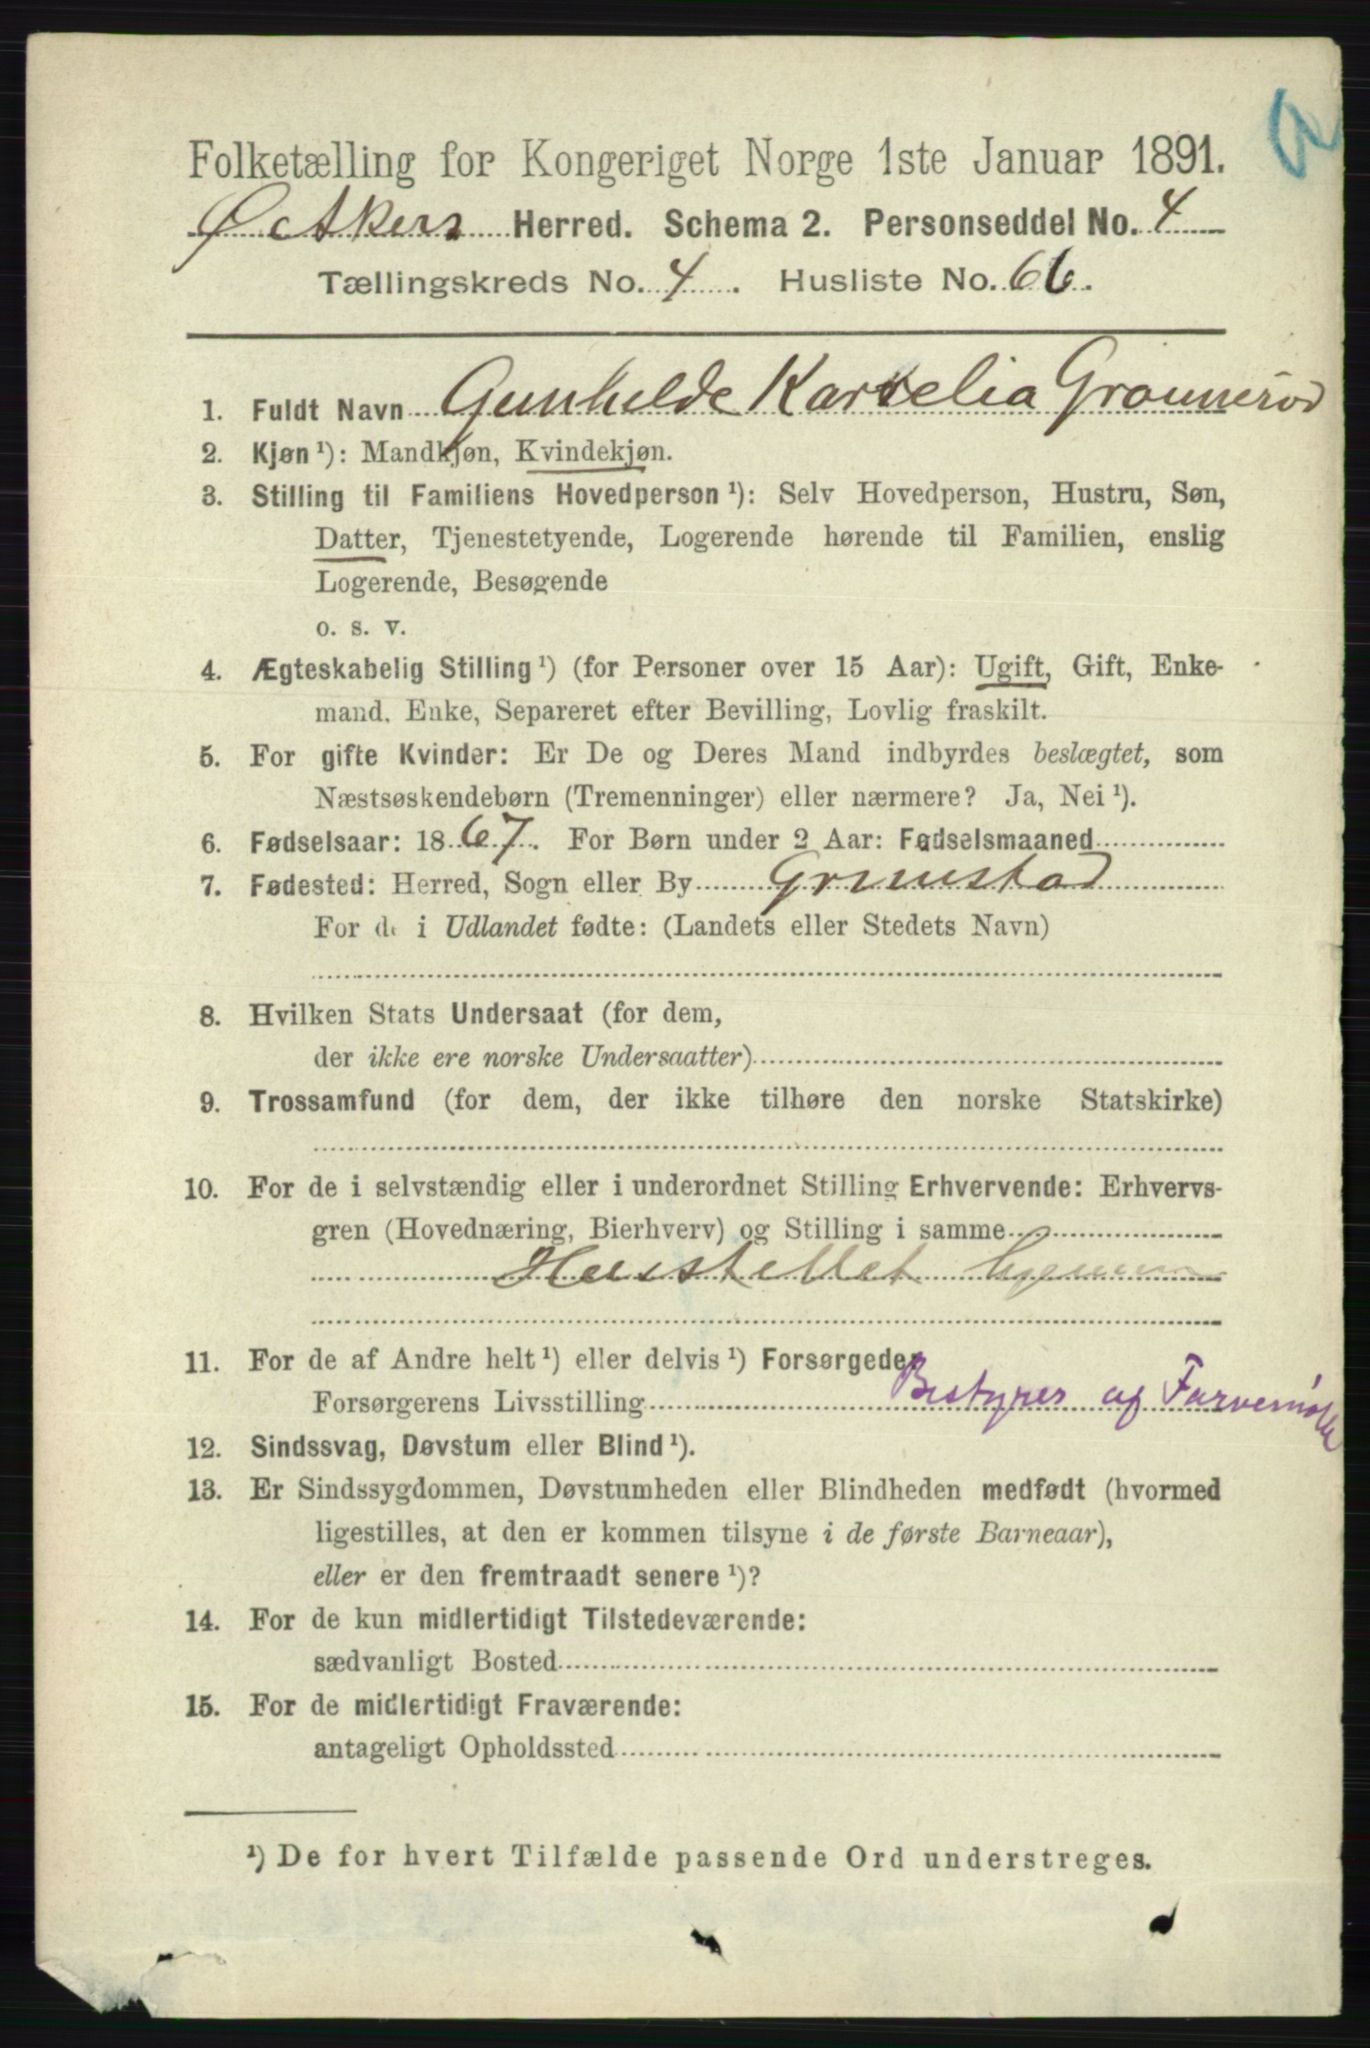 Folketælling for Kongeriget Norge 1ste Januar 1891.
Ø. Akers Herred. Schema 2. Personseddel No. 4
Tællingskreds No. 4. Husliste No. 66.
1. Fuldt Navn Gunhilde Karelia Grønnerød
2. Kjøn ¹): Mandkjøn, Kvindekjøn.
3. Stilling til Familiens Hovedperson ¹): Selv Hovedperson, Hustru, Søn,
Datter, Tjenestetyende, Logerende hørende til Familien, enslig
Logerende, Besøgende
o. s. v.
4. Ægteskabelig Stilling ¹) (for Personer over 15 Aar): Ugift, Gift, Enke-
mand, Enke, Separeret efter Bevilling, Lovlig fraskilt.
5. For gifte Kvinder: Er De og Deres Mand indbyrdes beslægtet, som
Næstsøskendebørn (Tremenninger) eller nærmere? Ja, Nei ¹).
6. Fødselsaar: 1867. For Børn under 2 Aar: Fødselsmaaned
7. Fødested: Herred, Sogn eller By Grimstad
For de i Udlandet fødte: (Landets eller Stedets Navn)
8. Hvilken Stats Undersaat (for dem,
der ikke ere norske Undersaatter)
9. Trossamfund (for dem, der ikke tilhøre den norske Statskirke)
10. For de i selvstændig eller i underordnet Stilling Erhvervende: Erhvervs-
gren (Hovednæring, Bierhverv) og Stilling i samme
Husstellet hjemme
11. For de af Andre helt ¹) eller delvis ¹) Forsørgede:
Forsørgerens Livsstilling Bestyrer af Farvemølle
12. Sindssvag, Døvstum eller Blind ¹).
13. Er Sindssygdommen, Døvstumheden eller Blindheden medfødt (hvormed
ligestilles, at den er kommen tilsyne i de første Barneaar),
eller er den fremtraadt senere ¹)?
14. For de kun midlertidigt Tilstedeværende:
sædvanligt Bosted
15. For de midlertidigt Fraværende:
antageligt Opholdssted
¹) De for hvert Tilfælde passende Ord understreges.